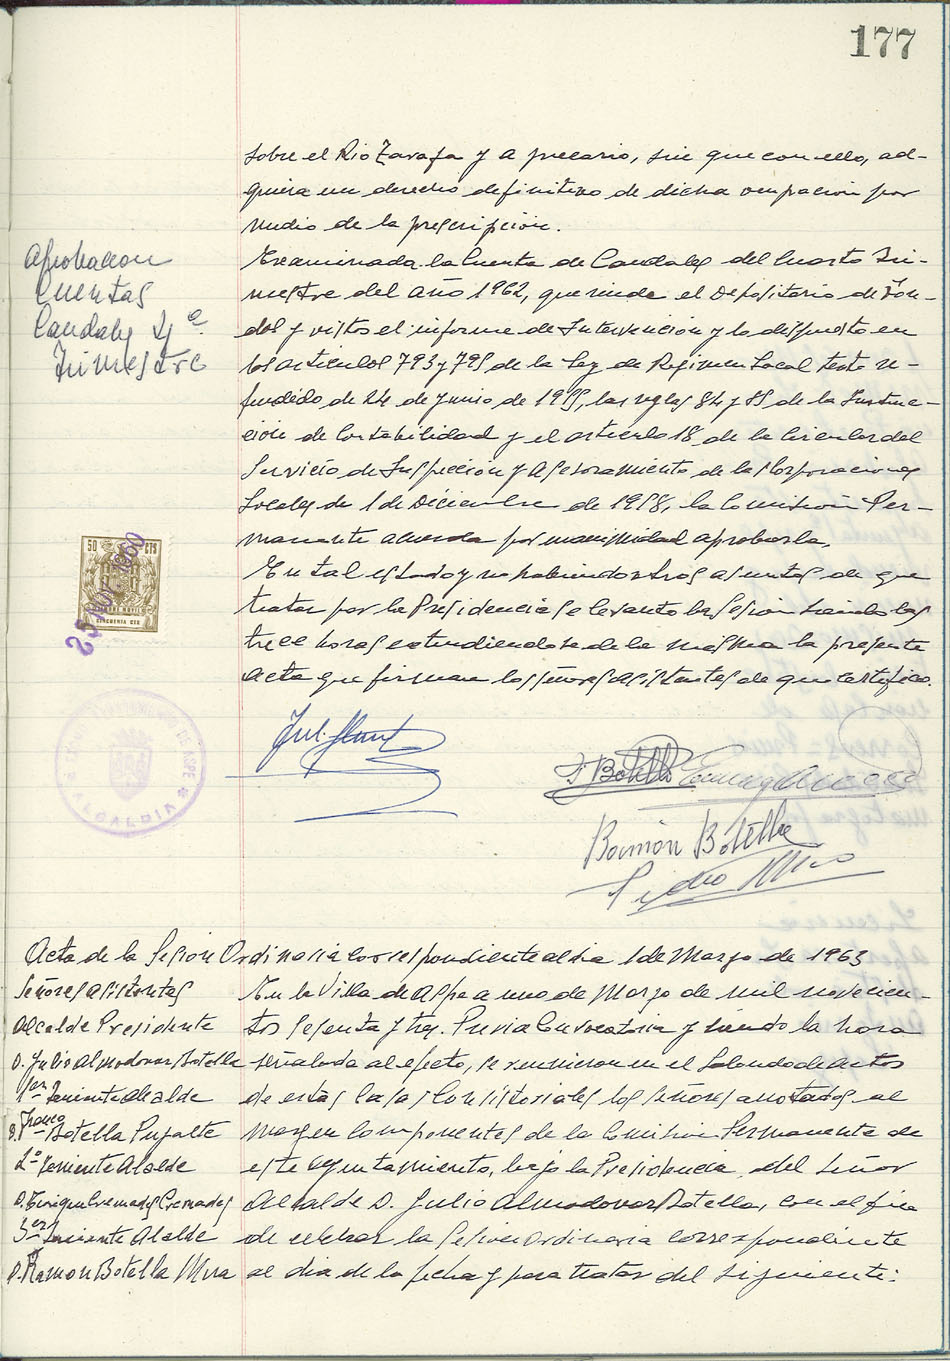 177
sobre el Rio Tarafa y a precario, sin que con ello, ad-
quiera un derecho definitivo de dicha ocupacion por
medio de la prescripción.
Aprobacion
Cuentas
Caudales 4º
Trimestre
Examinada la Cuenta de Caudales del Cuarto Tri-
mestre del año 1962, que rinde el Depositario de Fon-
dos y vistos el informe de Intervención y lo dispuesto en
los articulos 793 y 795 de la Ley de Regimen Local texto re-
fundido de 24 de junio de 1955, las reglas 84 y 85 de la Instruc-
ción de Contabilidad y el articulo 18 de la Circular del
Servicio de Inspección y Asesoramiento de las Corporaciones
Locales de 1 de Diciembre de 1958, la Comisión Per-
manente acuerda por unanimidad aprobarla.
En tal estado y no habiendo otros asuntos de que
tratar por la Presidencia se levanto la sesion siendo las
trece horas extendiendose de la misma la presente
Acta que firman los señores asistentes de que certifico.
50 CTS
CINCUENTA CTS
25 1960
AYUNTAMIENTO DE ASPE
ALCALDIA
F. Botella
Ramón Botella
Pedro
Acta de la Sesion Ordinaria correspondiente al dia 1 de Marzo de 1963
Señores asistentes
Alcalde Presidente
D. Julio Almodovar Botella
1er Teniente Alcalde
D. Franco Botella Pujalte
2º Teniente Alcalde
D. Enrique Cremades Cremades
3er Teniente Alcalde
D. Ramon Botella Mira
En la Villa de Aspe a uno de Marzo de mil novecien-
tos sesenta y tres. Previa Convocatoria y siendo la hora
señalada al efecto, se reunieron en el Salon de actos
de estas Casas Consistoriales los señores anotados al
margen componentes de la Comision Permanente de
este Ayuntamiento, bajo la Presidencia del Señor
Alcalde D. Julio Almodovar Botella, con el fin
de celebrar la Sesion Ordinaria correspondiente
al dia de la fecha y para tratar del siguiente: